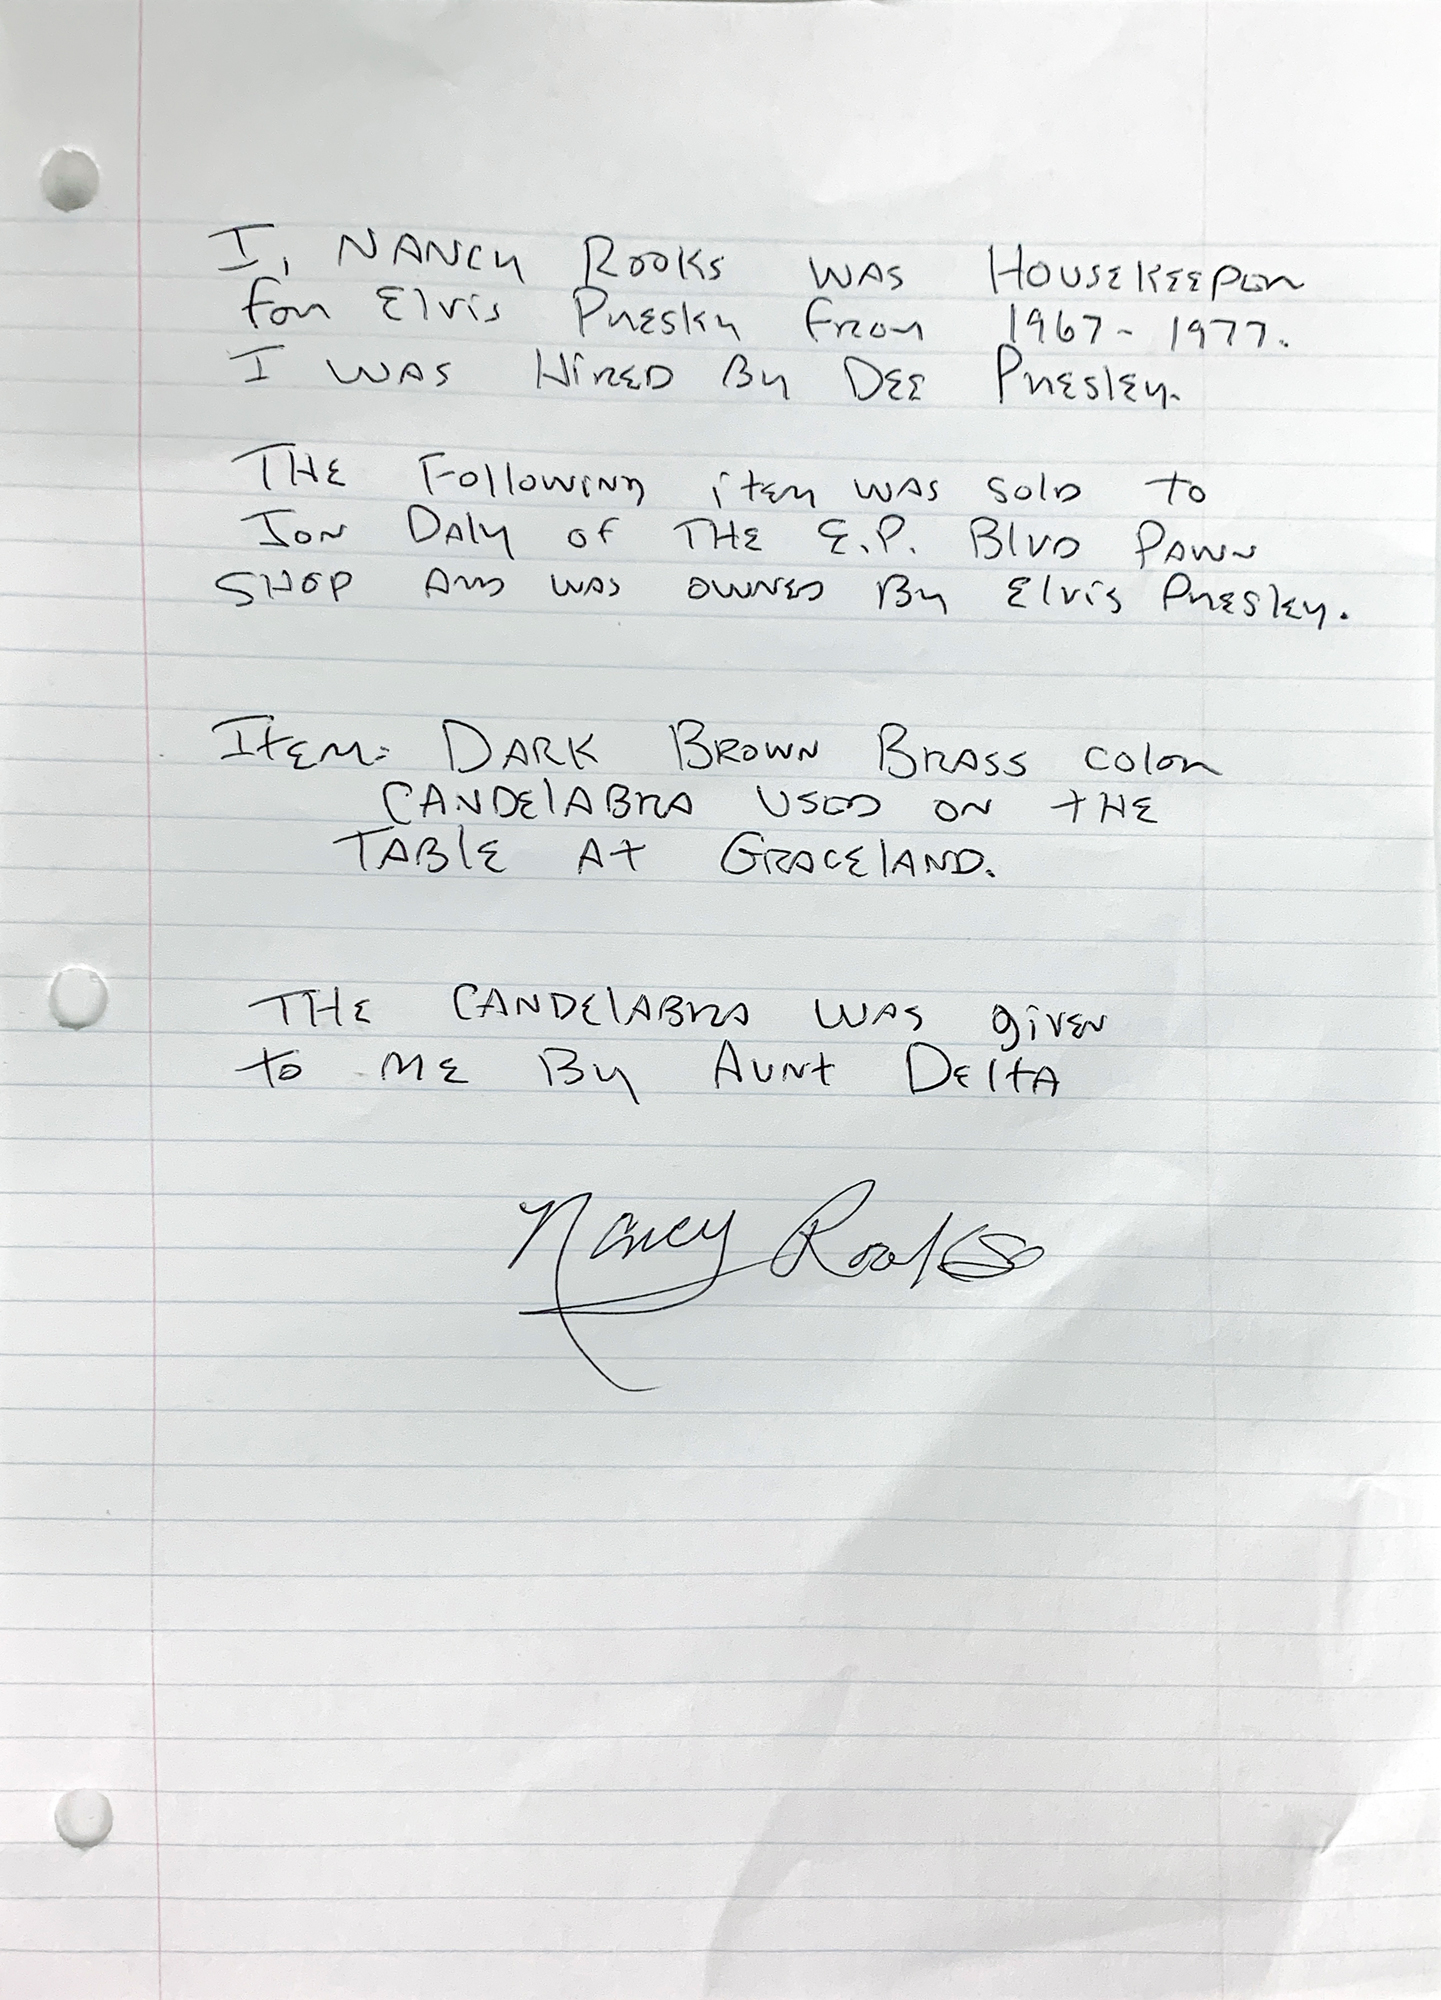 I, NANCY ROOKS WAS HOUSEKEEPER
for Elvis Presley From 1967-1977.
I WAS HIRED By DEE PRESLEY.
THE Following item WAS Sold to
JON DALY of THE E.P. Blvd PAWN
SHOP AND WAS OWNED By Elvis Presley.
Item: DARK BROWN BRASS Color
CANDELABRA USED ON tHE
TABLE At GRACELAND.
THE CANDELABRA WAS given
to ME By AUNt DEltA
Nancy Rooks